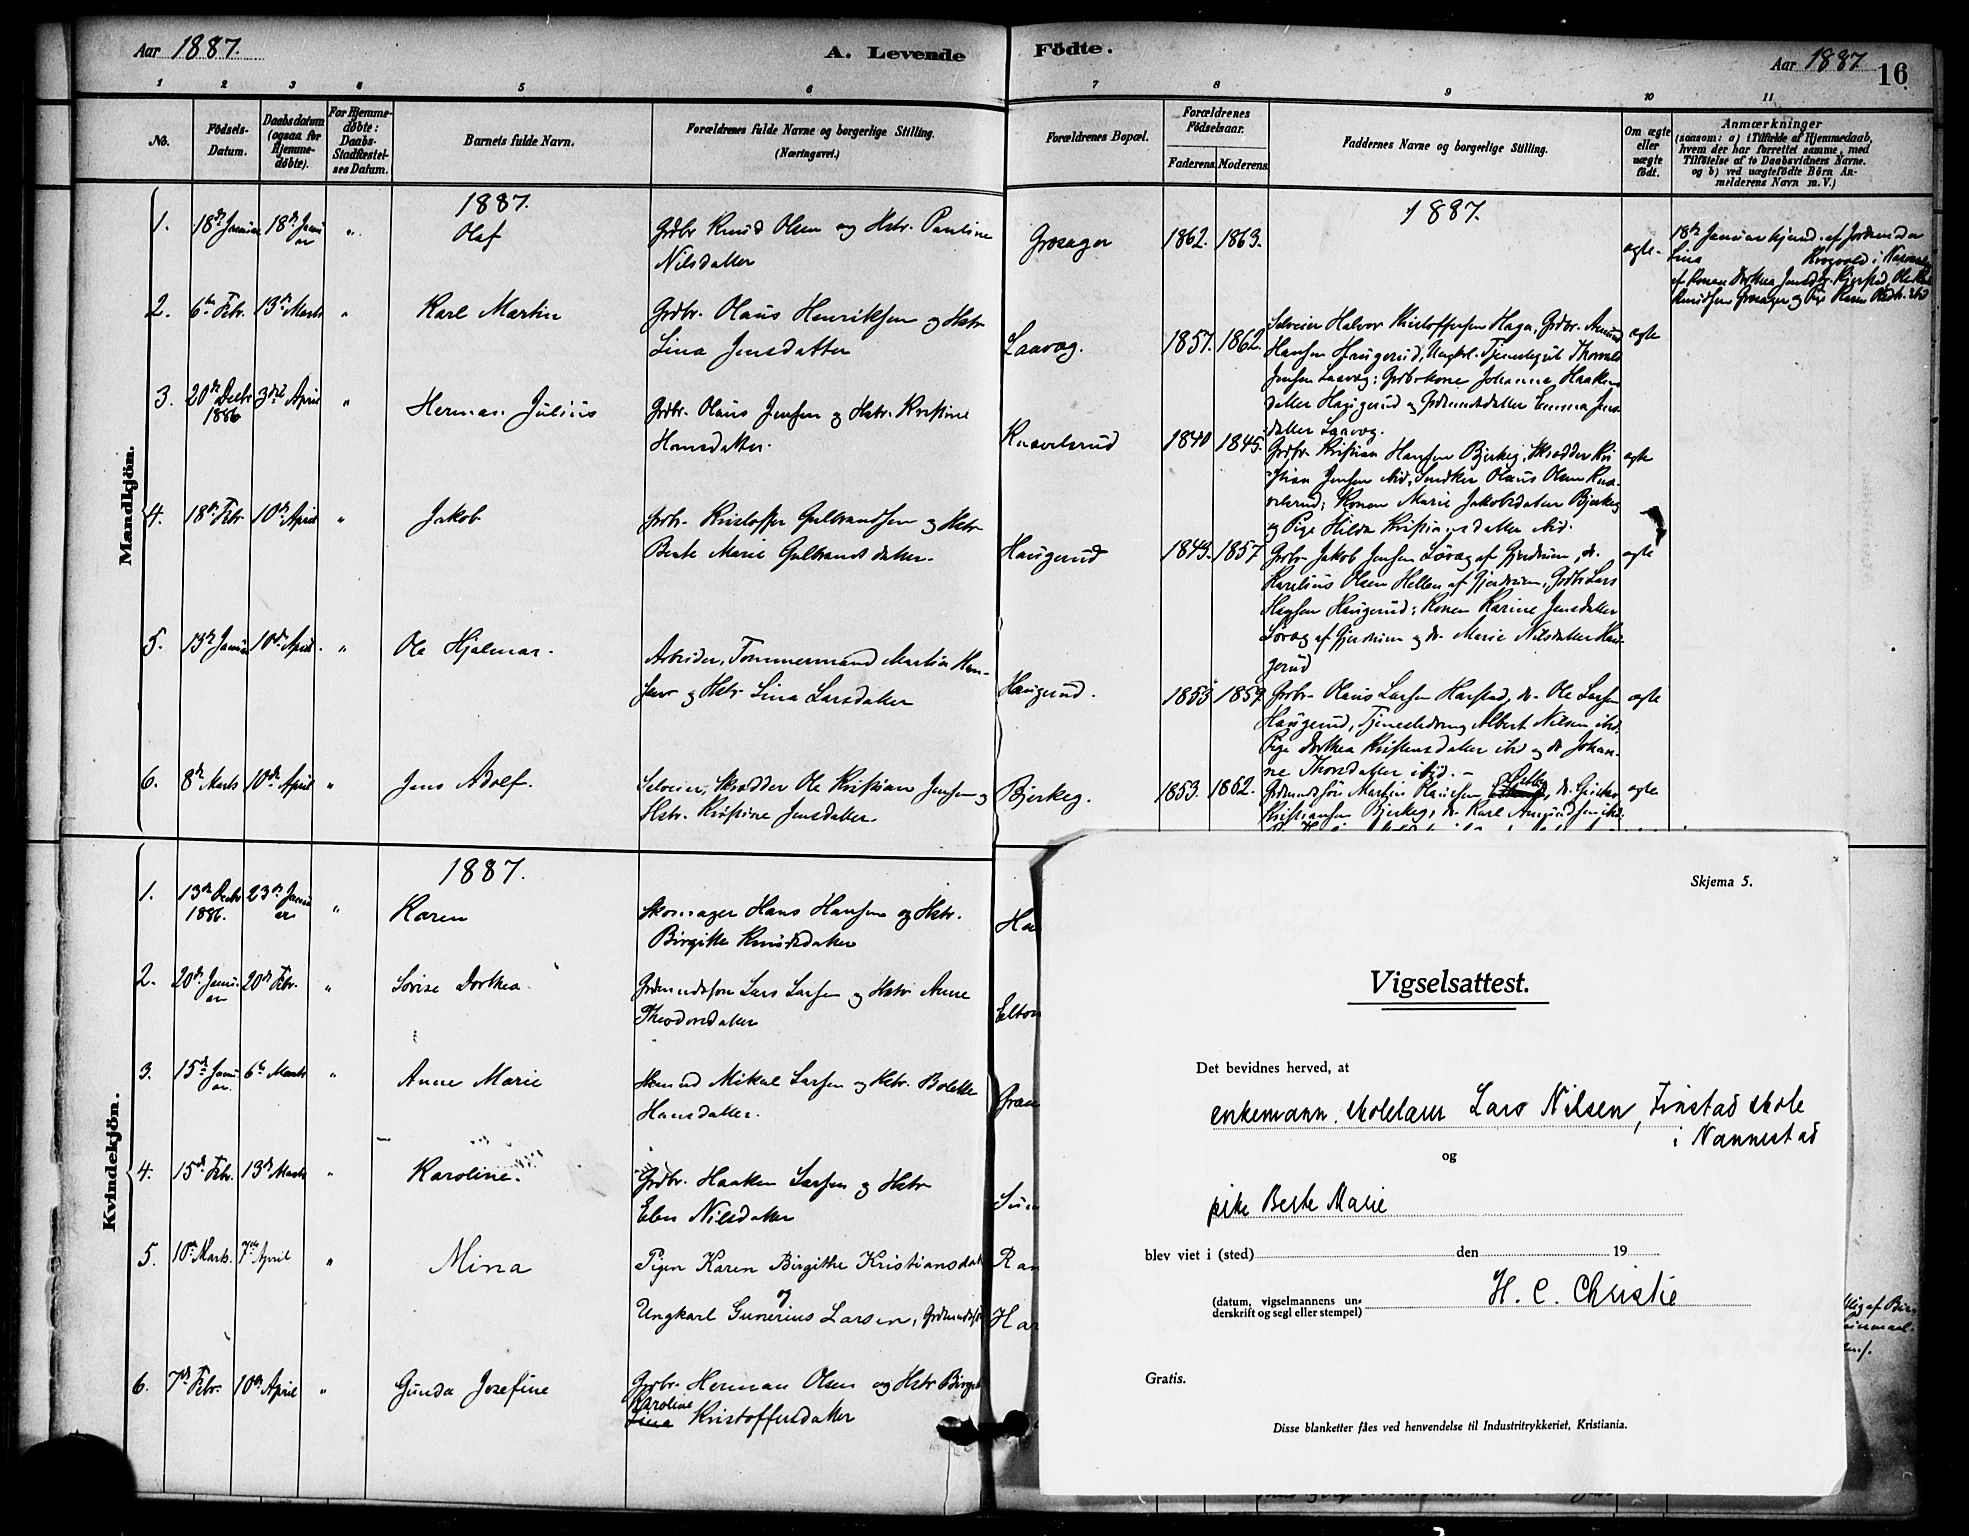 Aar 1887.
A. Levende
Födte.
Aar 1887
16.
1 2 3 4 5 6 7 8 9 10 11
No.
Födsels-
Datum.
Daabsdatum
(ogsaa for
Hjemme-
døbte).
For Hjemme-
døbte:
Daabs-
Stadfæstel-
ses Datum.
Barnets fulde Navn.
Forældrenes fulde Navne og borgerlige Stilling.
(Næringsvei.)
Forældrenes Bopæl.
Forældrenes
Födselsaar.
Faderens. Moderens.
Faddernes Navne og borgerlige Stilling.
Om ægte
eller
uægte
födt.
Anmærkninger
(saasom: a) i Tilfælde af Hjemmedaab,
hvem der har forrettet samme, med
Tilföielse af to Daabsvidners Navne.
og b) ved uægtefödte Börn An-
melderens Navn m. V.)
Mandkjön.
1887.
1887.
1. 18de Januar 18de Janu
ar " Olaf
Grdbr Knud Olsen og Hstr. Pauline
Nilsdatter
Grosager 1862. 1863. ægte.
2. 6te Febr. 13de Marts " Karl Martin
Grdbr. Olaus Henriksen og Hstr
Lina Jensdatter
Laavog. 1857. 1862.
Selveier Halvor Kristoffersen Haga, Grdbr. Amund
Hansen Haugerud, Ungkrl. Tjenestegut Thorvald
Jensen Laavog; Grdbrkone Johanne Haakens
datter Haugerud og Grdmdsdatter Emma Jens
datter Laavog.
ægte
3. 20de Decbr
1886 3die April " Herman Julius
Grdbr. Olaus Jensen og Hstr. Kristine
Hansdatter.
1840 1845.
Grdbr. Kristian Hansen Bjerkeg, Skrædder Kri
stian Jensen ibid, Snedker Olaus Olsen
Konen Marie Jakobsdatter Bjerkeg
og Pige Hilda Kristiansdatter ibid.
ægte
4. 18de Febr. 10de April " Jakob
Grdbr. Kristoffer Gulbrandsen og Hstr
Berte Marie Gulbrandsdatter.
Haugerud 1857
Grdbr Jakob Jensen Lövog af Gjerdrum, do.
Karelius Olsen Hellen af Gjerdrum, Grdbr Lars
Hansen Haugerud; Konen Karine Jensdatter
Lövog af Gjerdrum og do. Marie Nilsdatter Hau
gerud
ægte
5. 13de Januar 10de April. " Ole Hjalmar.
Arbeider, Tømmermand Martin Han-
sen og Hstr. Lina Larsdatter
Haugerud. 1853 1859
Grdbr. Olaus Larsen Harstad, do. Ole Larsen
Haugerud, Tjenestedreng Albert Nilsen ibid,
Pige Dorthea Kristensdatter ibid og do Johan-
ne Thorsdatter ibid. -
ægte
6. 8de Marts 10de April " Jens Adolf.
Selveier, Skrædder Ole Kristian Jensen og
Hstr. Kristine Jensdatter.
Bjerkeg. 1853. 1862.
Kristiansen Bjerkeg, do Karl Amundsen ibid.
ægte
Kvindekjön.
1887.
1. 13de Decbr
1886. 23de Janu
ar " Karen
Skomager Hans Hansen og Hstr.
Birgitte Knudsdatter
2. 20de Janu
ar 20de Febr. " Lovise Dorthea.
Grdmandssön Lars Larsen og Hstr Anne
Theodorsdatter
Elton
3. 15de Janu
ar. 6te Marts " Anne Marie
Husmd Mikal Larsen og Hstr. Bolette
Hansdatter.
Gran
4. 15de Febr. 13de Marts " Karoline.
Grdbr. Haaken Larsen og Hstr
Elen Nilsdatter
5. 10de Marts. 7de April " Mina
Pigen Karen Birgithe Kristiansdat
og
Ungkarl Gunerius Larsen, Grdmandssön
6. 7de Febr. 10de April " Gunda Josefine
Grdbr. Herman Olsen og Hstr Birgit
Karoline
Lina Kristoffersdatter
Skjema 5.
Vigselsattest.
Det bevidnes herved, at
enkemann, skolelærer Lars Nilsen, Finstad skole
i Nannestad
og
pike Berte Marie
blev viet i (sted) den 19
(datum, vigselmannens un-
derskrift og segl eller stempel) H. C. Christie
Gratis.
Disse blanketter fåes ved henvendelse til Industritrykkeriet, Kristiania.